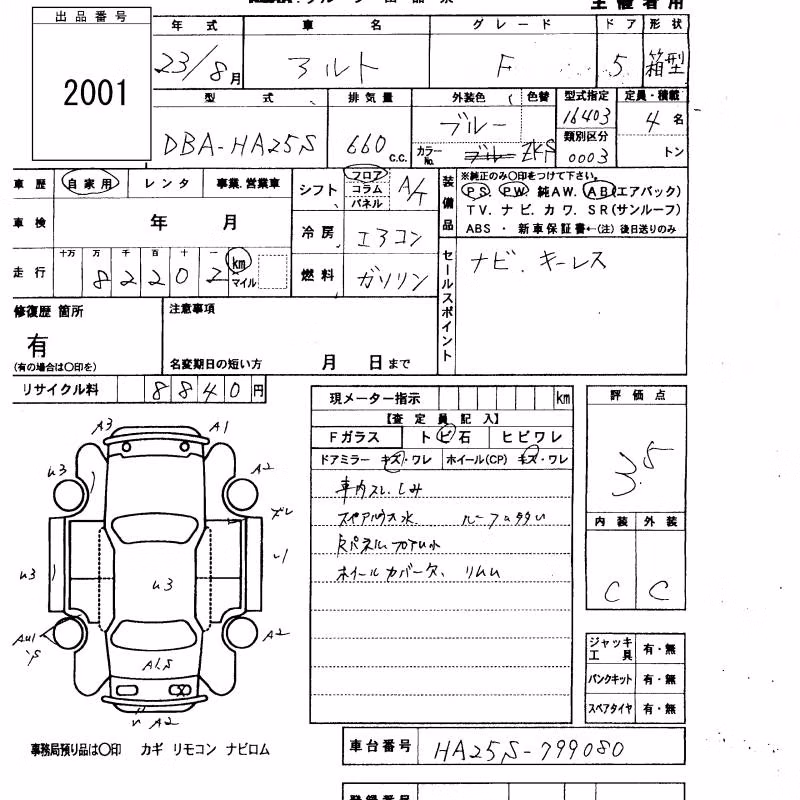 主催者用
出品番号
2001
年式 車名 グレード ドア 形状
23/8月 アルト F 5 箱型
型式 排気量 外装色 色替 型式指定 定員・積載
DBA-HA25S 660 c.c. ブルー 16403 4名
カラーNo. ZKS 類別区分 0003 トン
車歴 自家用 レンタ 事業.営業車
シフト フロア コラム パネル A/T
装備品 ※純正のみ〇印をつけて下さい。
PS PW 純AW. AB(エアバック)
TV. ナビ. カワ. SR(サンルーフ)
ABS ・ 新車保証書←(注) 後日送りのみ
車検 年 月
冷房 エアコン
走行 十万 万 千 百 十 一
82202 km マイル
燃料 ガソリン
セールスポイント ナビ. キーレス
修復歴 箇所
有
(有の場合は〇印を)
注意事項
名変期日の短い方 月 日まで
リサイクル料 8840円
現メーター指示 km
【査定員記入】
Fガラス トビ石 ヒビワレ
ドアミラー キズ・ワレ ホイール(CP) キズ・ワレ
車内スレ.しみ
評価点
3.5
内装 外装
C C
A3 A1
u3 A2
u3 u3
A2
A2
ジャッキ工具 有・無
パンクキット 有・無
スペアタイヤ 有・無
事務局預り品は〇印 カギ リモコン ナビロム
車台番号 HA25S-799080
登録番号